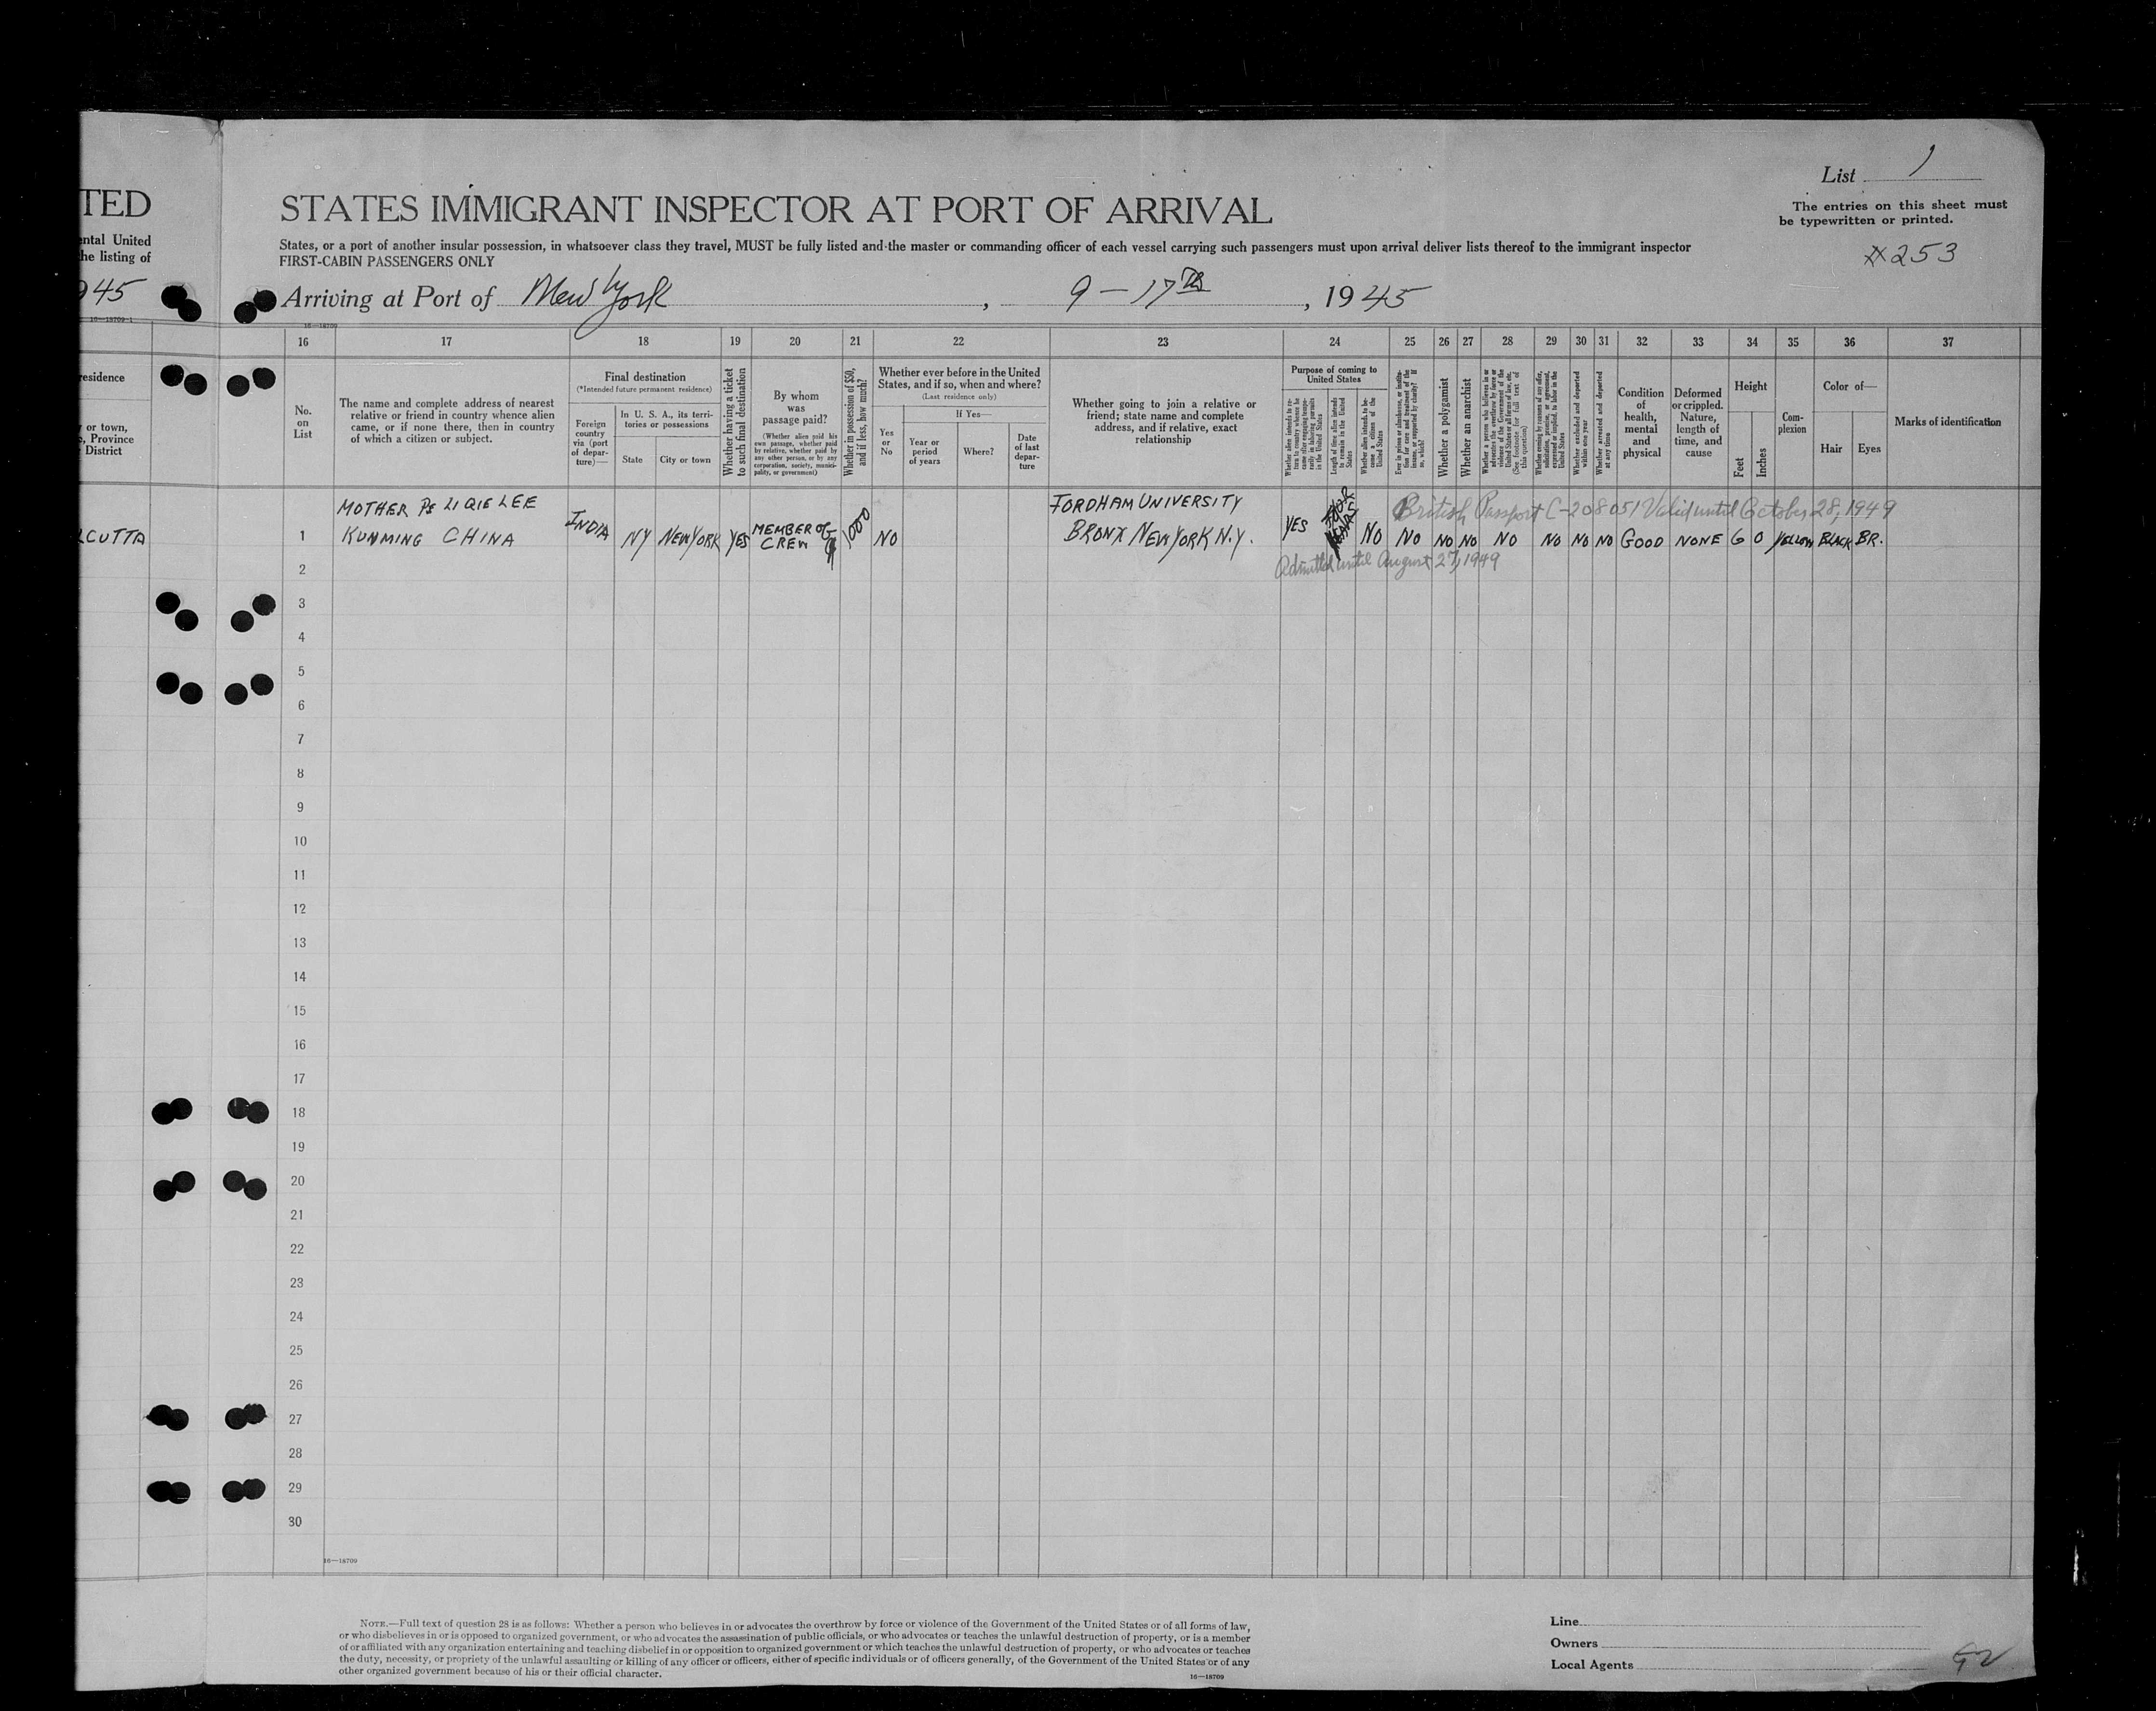 TED
ental United
he listing of
945
16—18709-1
residence
or town,
, Province
District
LCUTTA
List 1
STATES IMMIGRANT INSPECTOR AT PORT OF ARRIVAL
The entries on this sheet must
be typewritten or printed.
States, or a port of another insular possession, in whatsoever class they travel, MUST be fully listed and the master or commanding officer of each vessel carrying such passengers must upon arrival deliver lists thereof to the immigrant inspector
FIRST-CABIN PASSENGERS ONLY
#253
Arriving at Port of New York, 9 - 17th, 1945
16—18709
16 17 18 19 20 21 22 23 24 25 26 27 28 29 30 31 32 33 34 35 36 37
No. on List
The name and complete address of nearest relative or friend in country whence alien came, or if none there, then in country of which a citizen or subject.
Final destination
(*Intended future permanent residence)
Foreign country via (port of departure)—
In U. S. A., its territories or possessions
State
City or town
Whether having a ticket to such final destination
By whom was passage paid?
(Whether alien paid his own passage, whether paid by relative, whether paid by any other person, or by any corporation, society, municipality, or government)
Whether in possession of $50, and if less, how much?
Whether ever before in the United States, and if so, when and where?
(Last residence only)
Yes or No
If Yes—
Year or period of years
Where?
Date of last departure
Whether going to join a relative or friend; state name and complete address, and if relative, exact relationship
Purpose of coming to United States
Whether alien intends to return to country whence he came after engaging temporarily in laboring pursuits in the United States
Length of time alien intends to remain in the United States
Whether alien intends to become a citizen of the United States
Ever in prison or almshouse, or institution for care and treatment of the insane, or supported by charity? If so, which?
Whether a polygamist
Whether an anarchist
Whether a person who believes in or advocates the overthrow by force or violence of the Government of the United States or all forms of law, etc. (See footnote for full text of this question)
Whether coming by reasons of any offer, solicitation, promise, or agreement, expressed or implied, to labor in the United States
Whether excluded and deported within one year
Whether arrested and deported at any time
Condition of health, mental and physical
Deformed or crippled. Nature, length of time, and cause
Height
Feet
Inches
Complexion
Color of—
Hair
Eyes
Marks of identification
MOTHER PE LI QIE LEE
FORDHAM UNIVERSITY
British Passport C-208051 Valid until October 28, 1949
1 KUNMING CHINA INDIA NY NEW YORK YES MEMBER OF CREW 1000 NO BRONX NEW YORK N.Y. YES YEARS NO NO NO NO NO NO NO NO GOOD NONE 6 0 YELLOW BLACK BR.
Admitted until August 27, 1949
2
3
4
5
6
7
8
9
10
11
12
13
14
15
16
17
18
19
20
21
22
23
24
25
26
27
28
29
30
16—18709
NOTE.—Full text of question 28 is as follows: Whether a person who believes in or advocates the overthrow by force or violence of the Government of the United States or of all forms of law,
or who disbelieves in or is opposed to organized government, or who advocates the assassination of public officials, or who advocates or teaches the unlawful destruction of property, or is a member
of or affiliated with any organization entertaining and teaching disbelief in or opposition to organized government or which teaches the unlawful destruction of property, or who advocates or teaches
the duty, necessity, or propriety of the unlawful assaulting or killing of any officer or officers, either of specific individuals or of officers generally, of the Government of the United States or of any
other organized government because of his or their official character.
16—18709
Line
Owners
Local Agents